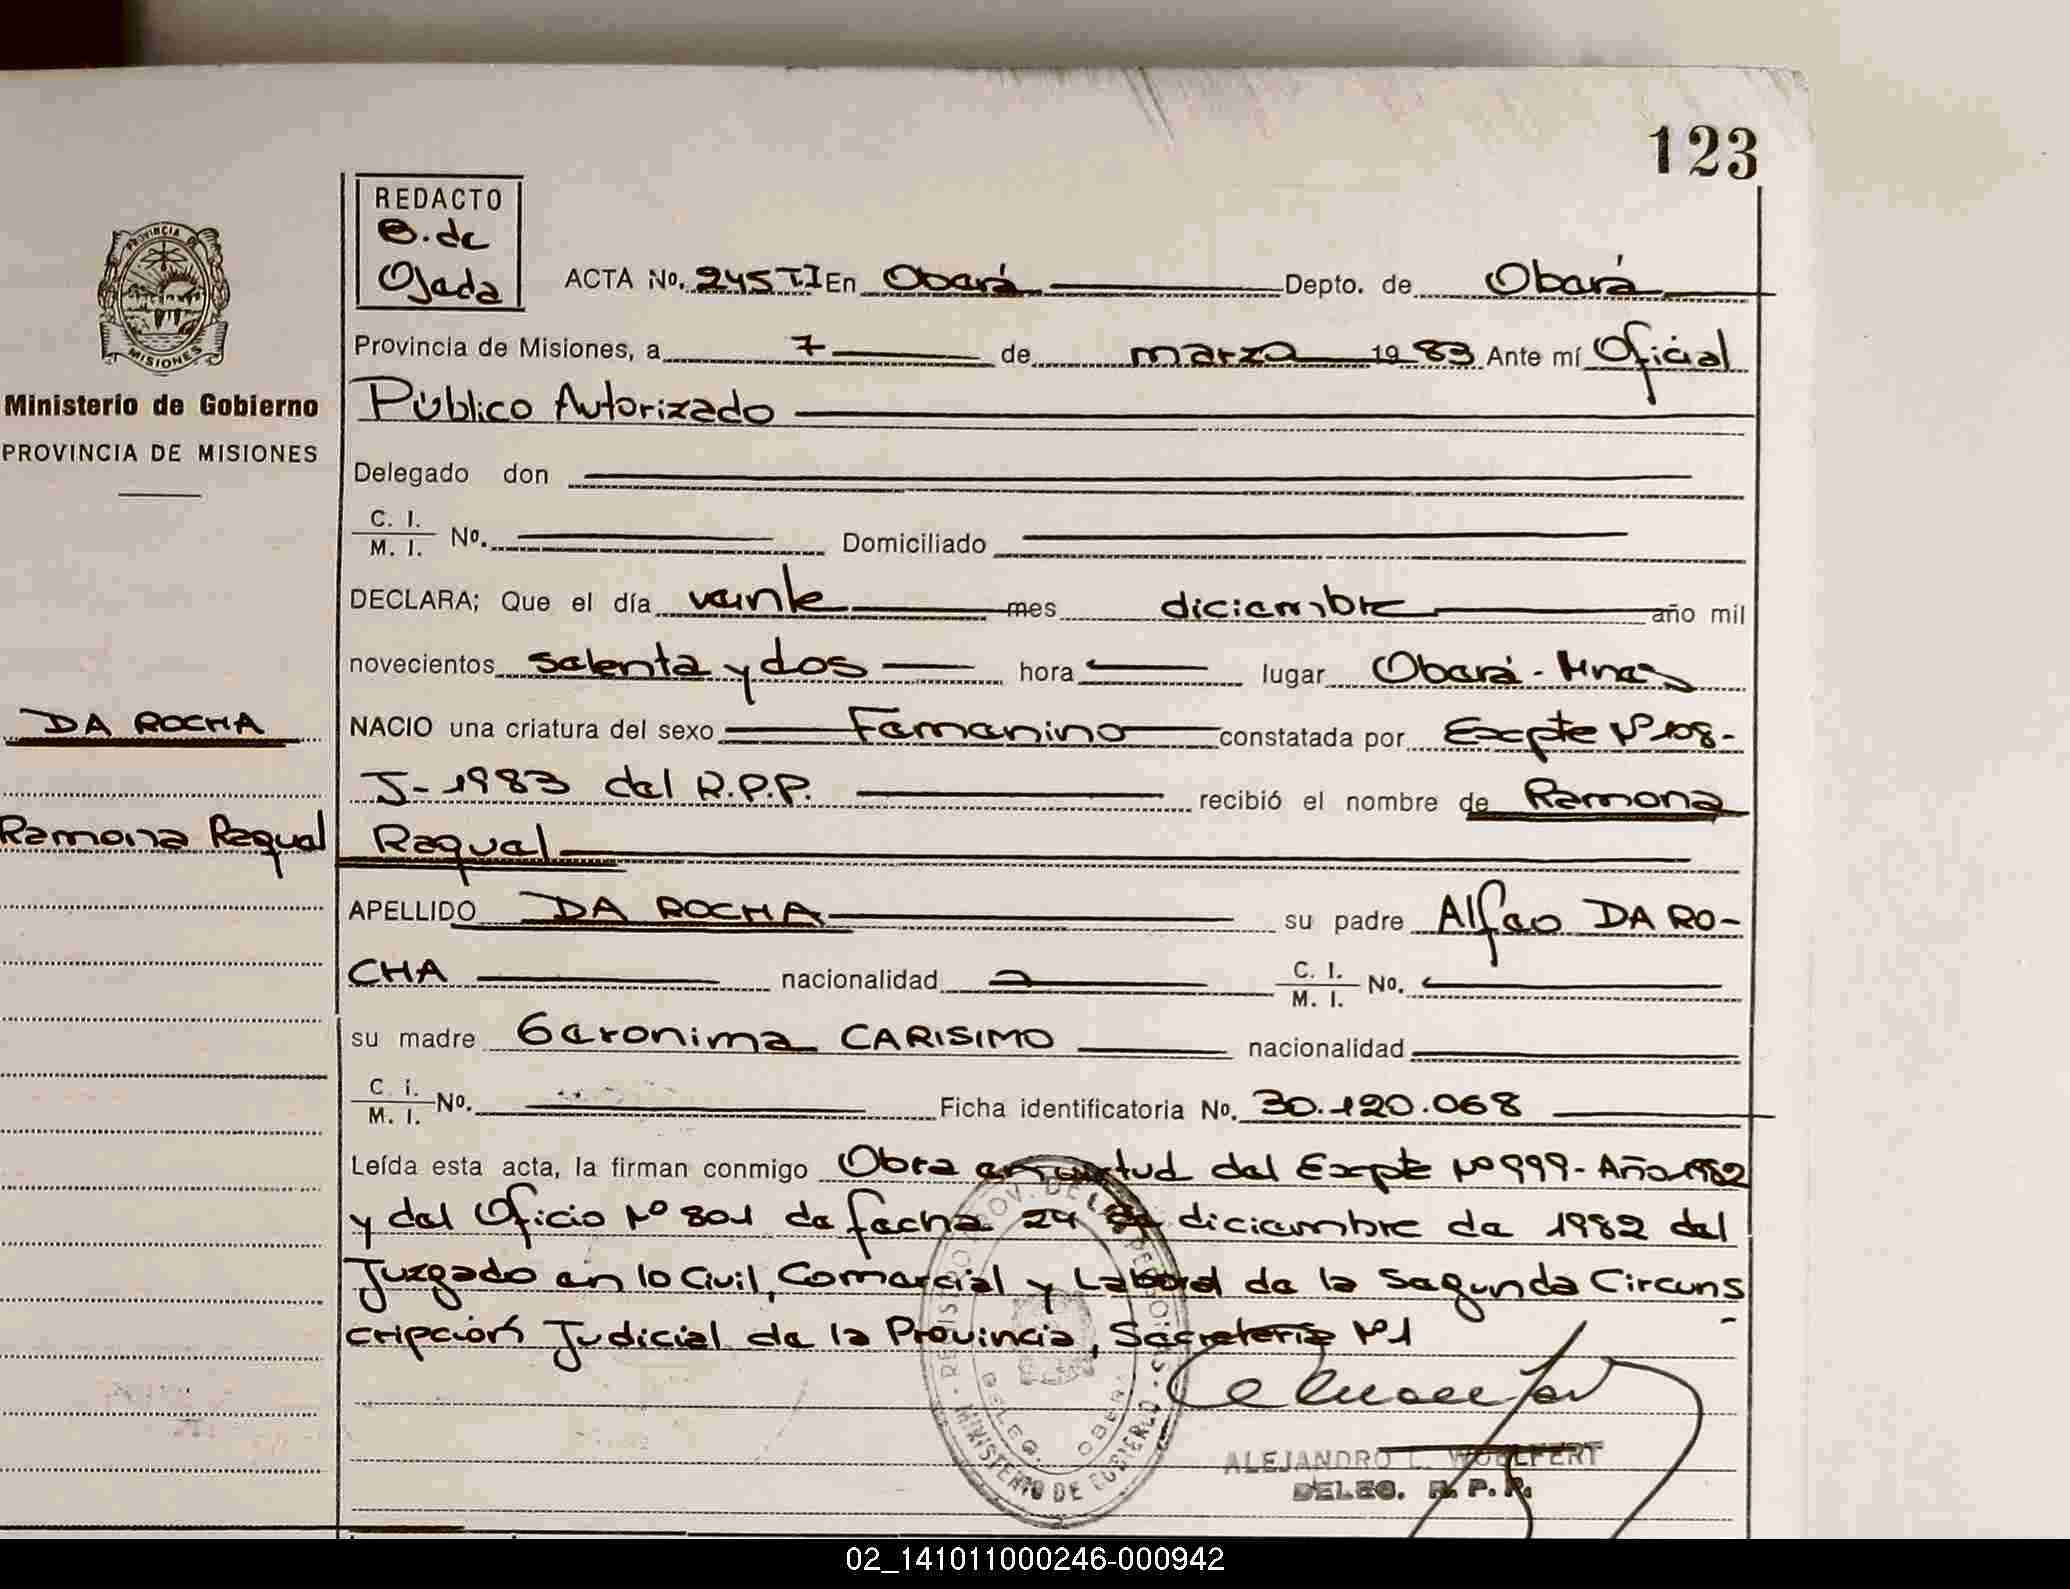 123
REDACTO
B. de
Ojeda
PROVINCIA DE
MISIONES
ACTA No. 245 TI En Oberá Depto. de Oberá
Provincia de Misiones, a 7 de marzo 1983 Ante mí Oficial
Ministerio de Gobierno
Público Autorizado
PROVINCIA DE MISIONES
Delegado don
C. I.
M. I. No. Domiciliado
DECLARA; Que el día veinte mes diciembre año mil
novecientos setenta y dos hora lugar Oberá - Mnes
DA ROCHA
NACIO una criatura del sexo Femenino constatada por Expte Nº 108-
J-1983 del R.P.P. recibió el nombre de Ramona
Ramona Raquel
Raquel
APELLIDO DA ROCHA su padre DA RO-
CHA nacionalidad C. I.
M. I. No.
su madre Geronima CARISIMO nacionalidad
C. I.
M. I. No. Ficha identificatoria No. 30.120.068
Leída esta acta, la firman conmigo Obra en virtud del Expte Nº 999- Año 1982
y del Oficio Nº 801 de fecha 24 de diciembre de 1982 del
Juzgado en lo Civil, Comercial y Laboral de la Segunda Circuns
cripción Judicial de la Provincia, Secretería Nº 1
MINISTERIO DE GOBIERNO
DELEG. OBERA
ALEJANDRO L. WOELFERT
DELEG. R. P. P.
02_141011000246-000942